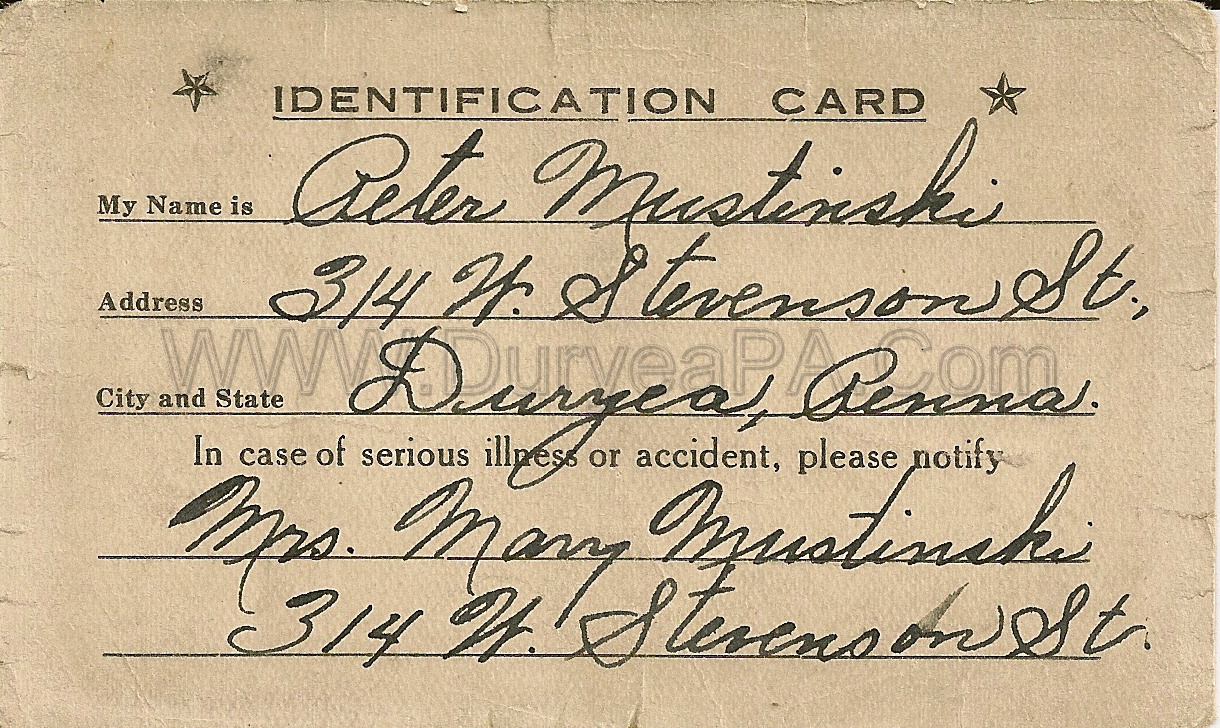 IDENTIFICATION CARD
My Name is Peter Mustinski
Address 314 W. Stevenson St.,
WWW.DuryeaPA.Com
City and State Duryea, Penna.
In case of serious illness or accident, please notify
Mrs. Mary Mustinski
314 W. Stevenson St.